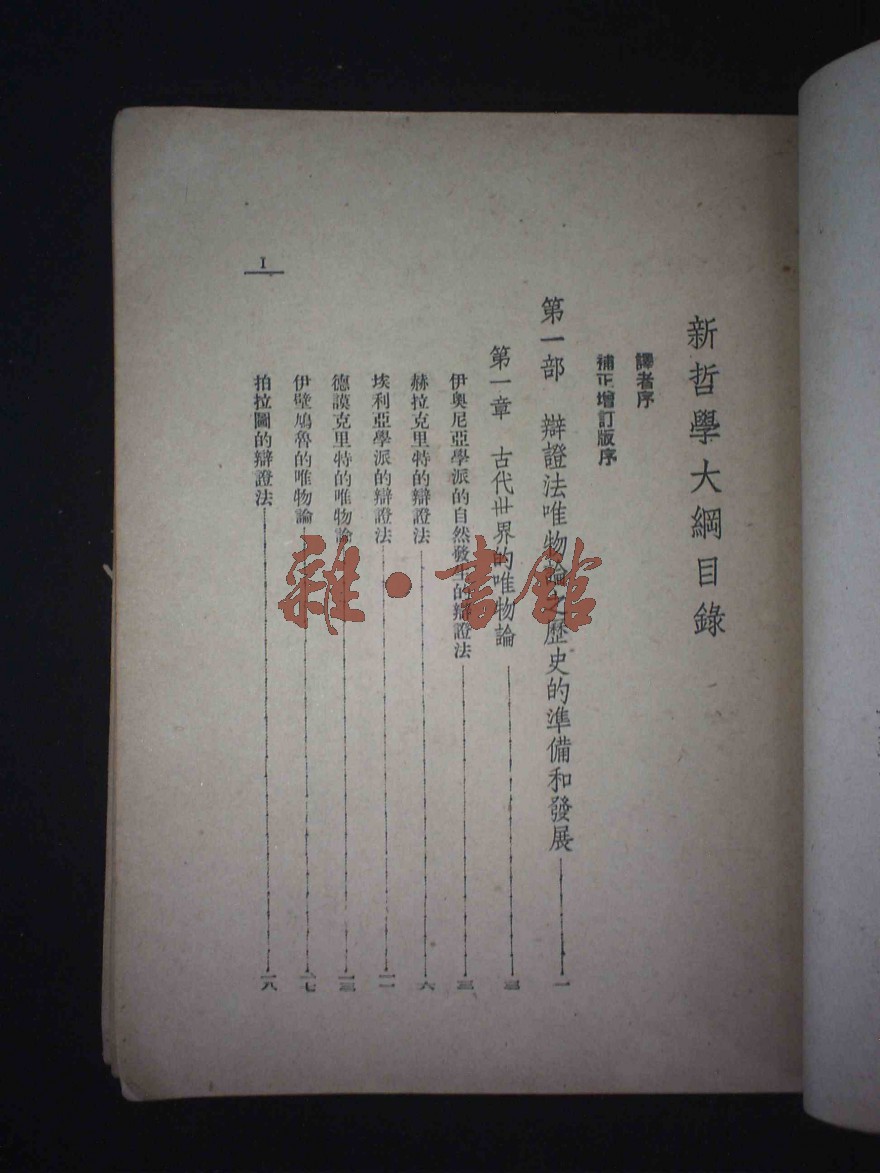 新哲學大綱目錄
譯者序
補正增訂版序
第一部 辯證法唯物論之歷史的準備和發展——一
第一章 古代世界的唯物論——三
伊奧尼亞學派的自然發生的辯證法——三
赫拉克里特的辯證法——六
埃利亞學派的辯證法——一一
德謨克里特的唯物論——一三
伊壁鳩魯的唯物論——一七
拍拉圖的辯證法——一八
I
雜·書館